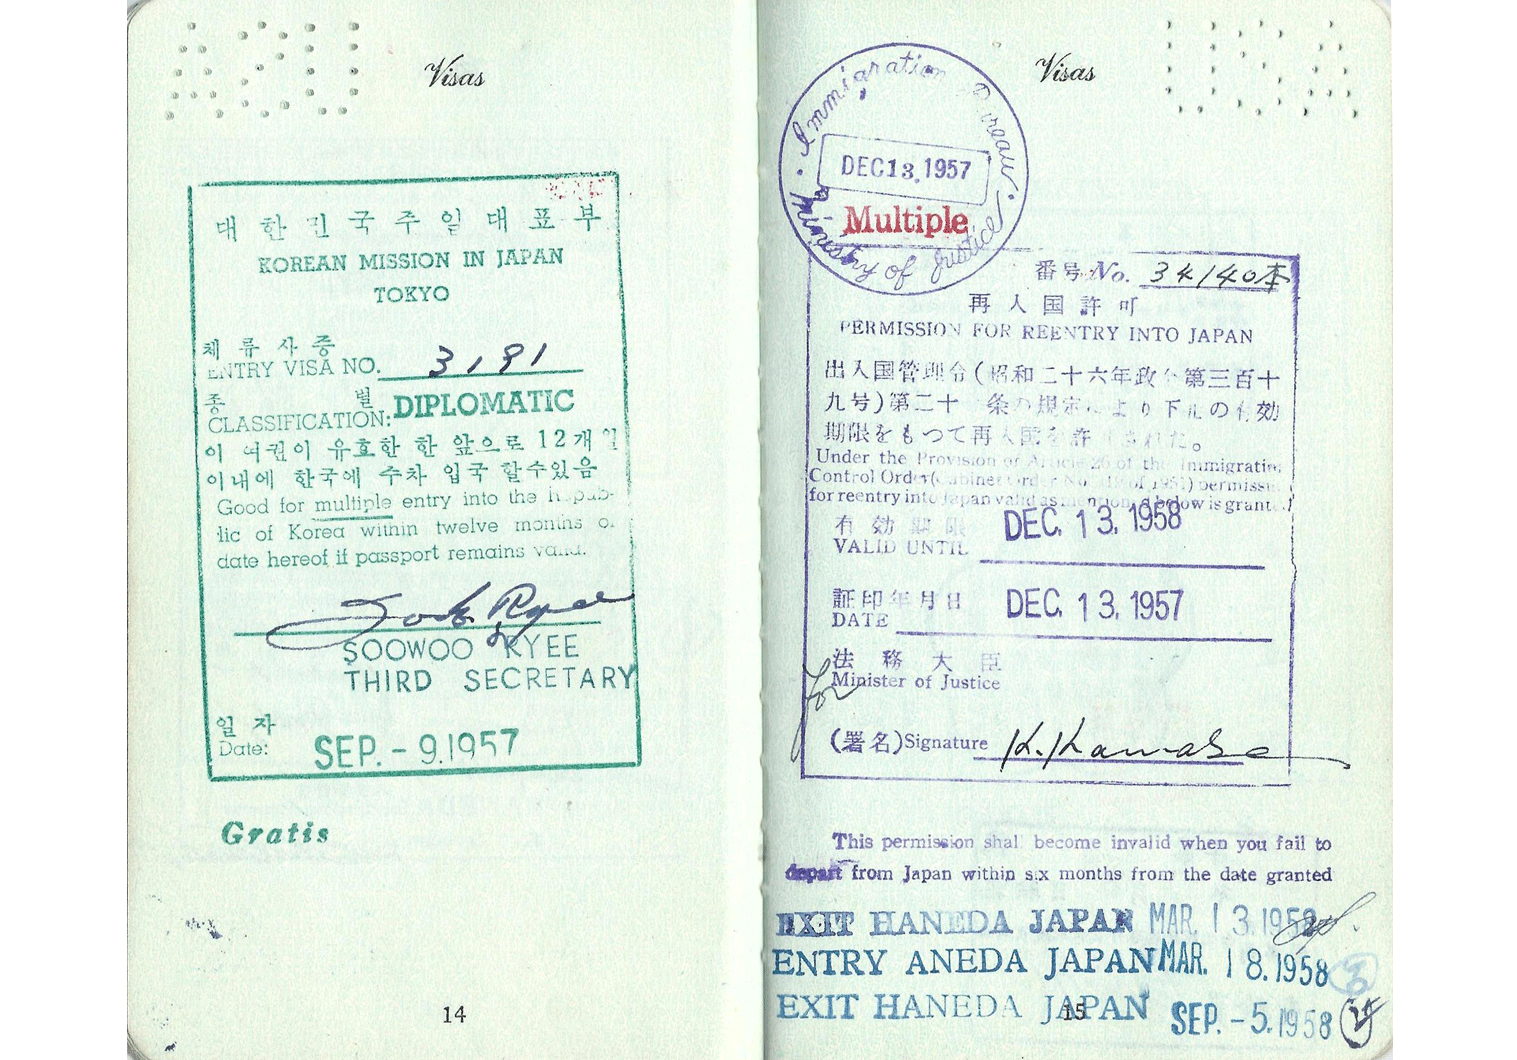 Visas
대한민국주일대표부
KOREAN MISSION IN JAPAN
TOKYO
체류사증
ENTRY VISA NO. 3191
종 별
CLASSIFICATION: DIPLOMATIC
이 여권이 유효한 한 앞으로 12개월
이내에 한국에 수차 입국 할수있음
Good for multiple entry into the Repub-
lic of Korea within twelve months of
date hereof if passport remains valid.
SOOWOO RYEE
THIRD SECRETARY
일자
Date: SEP. - 9. 1957
Gratis
14
USA
Visas
Immigration Bureau
DEC 13. 1957
Multiple
Ministry of Justice
番号 No. 34140本
再入国許可
PERMISSION FOR REENTRY INTO JAPAN
出入国管理令(昭和二十六年政令第三百十
九号)第二十六条の規定により下記の有効
期限をもつて再入国を許可された。
Under the Provision of Article 26 of the Immigration
Control Order (Cabinet Order No. 319 of 1951) permission
for reentry into Japan valid as mentioned below is granted
有効期限
VALID UNTIL DEC. 13. 1958
証印年月日
DATE DEC. 13. 1957
法務大臣
for Minister of Justice
(署名)Signature
This permission shall become invalid when you fail to
depart from Japan within six months from the date granted
EXIT HANEDA JAPAN MAR. 13. 1958
ENTRY ANEDA JAPAN MAR. 18. 1958
EXIT HANEDA JAPAN SEP. - 5. 1958
15